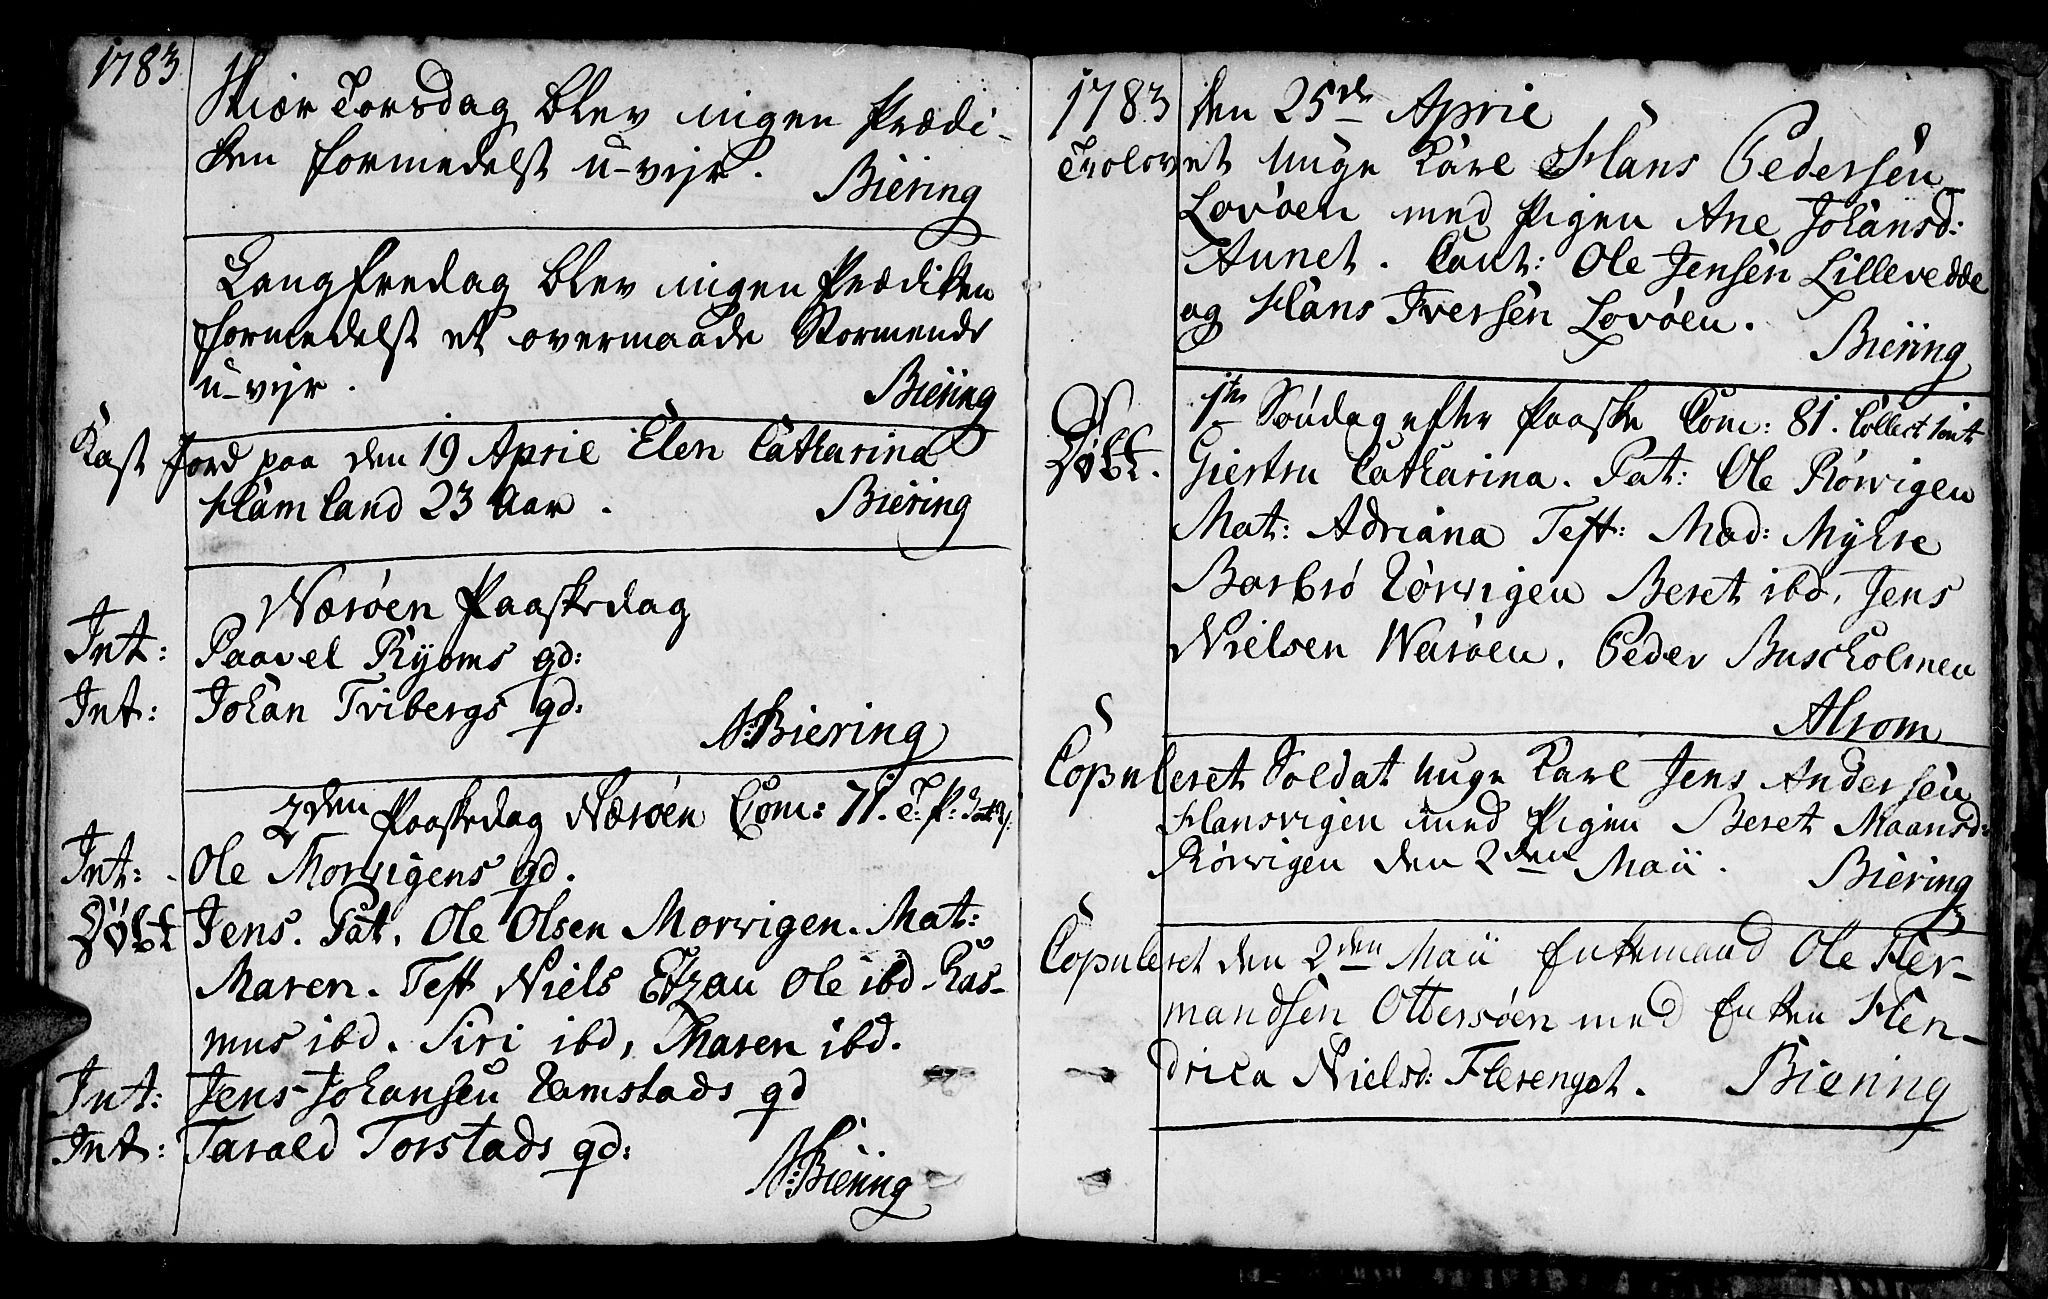 1783
Skiær Torsdag blev ingen Prædi-
ken formedelst u-vejr.
Biering
Langfredag blev ingen Prædiken
formedelst et overmaade Stormende
u-vejr.
Biering
Kast Jord paa den 19 April Elen Catharina
Hamland 23 Aar.
Biering
Nærøen Paaskedag
Int: Paavel Ryoms qd:
Int: Johan Tvibergs qd:
N: Biering
2den Paaskedag Nærøen Com: 71. T: P:
Int: Ole Morvigens qd.
Døbt Jens. Pat. Ole Olsen Morvigen. Mat:
Maren. Test Niels Etzau Ole ibd. Ras-
mus ibd. Siri ibd, Maren ibd.
Int: Jens Johansen Ramstads qd
Int: Tarald Torstads qd:
N: Biering
1783 den 25de Aprie
Trolovet unge Karl Hans Pedersen
Lovøen med Pigen Ane Johansd:
Aunet. Caut: Ole Jensen Lillevedde
og Hans Iversen Lovøen.
Biering
1te Søndag efter Paaske Com: 81. Collect
Døbt. Giertru Catharina. Pat: Ole Rørvigen
Mat: Adriana Test: Mad: Myhre
Barbro Rørvigen Beret ibd. Jens
Nielsen Nærøen. Peder Buscholmen
Alrom
Copuleret Soldat unge Karl Jens Andersen
Hansvigen med Pigen Beret Maansd:
Rørvigen den 2den Maii.
Biering
Copuleret den 2den Maii Enkemand Ole Her-
mandsen Ottersøen med Enken Hen-
drica Nielsd: Flerenget.
Biering